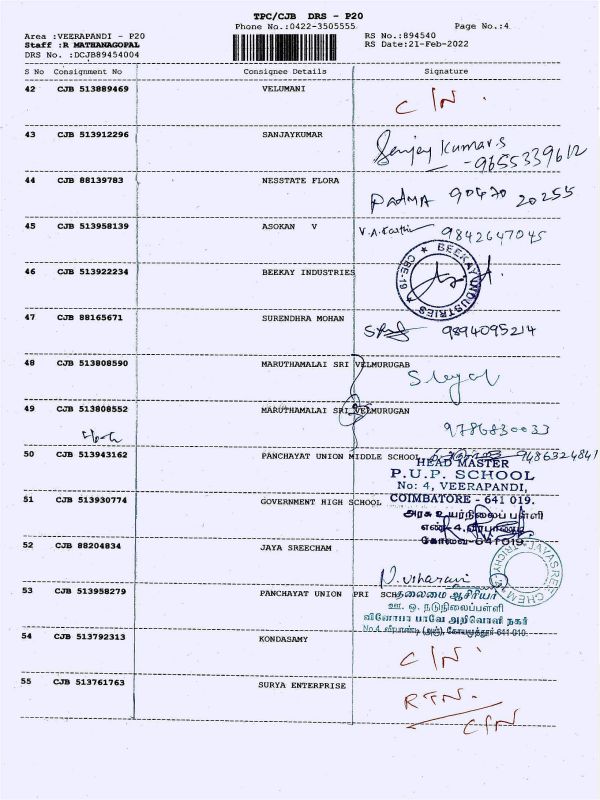 TPC/CJB DRS - P20
Phone No.:0422-3505555
Page No.:4
Area :VEERAPANDI - P20
Staff :R MATHANAGOPAL
DRS No. :DCJB89454004
RS No.:894540
RS Date:21-Feb-2022
S No Consignment No Consignee Details Signature
42 CJB 513889469 VELUMANI C/N.
43 CJB 513912296 SANJAYKUMAR Sanjay Kumar.S
-9655339612
44 CJB 88139783 NESSTATE FLORA PADMA 90470 20255
45 CJB 513958139 ASOKAN V V.A. 9842647045
46 CJB 513922234 BEEKAY INDUSTRIES BEEKAY INDUSTRIES CBE-19
47 CJB 88165671 SURENDHRA MOHAN 9894095214
48 CJB 513808590 MARUTHAMALAI SRI VELMURUGAB
49 CJB 513808552 MARUTHAMALAI SRI VELMURUGAN 9786830033
50 CJB 513943162 PANCHAYAT UNION MIDDLE SCHOOL 9486324841
HEAD MASTER
P.U.P. SCHOOL
No: 4, VEERAPANDI,
51 CJB 513930774 GOVERNMENT HIGH SCHOOL COIMBATORE - 641 019.
அரசு உயர்நிலைப் பள்ளி
எண்-4.வீரபாண்டி
கோவை-641019.
52 CJB 88204834 JAYA SREECHAM
53 CJB 513958279 PANCHAYAT UNION PRI SCH தலைமை ஆசிரியர்
ஊ. ஒ. நடுநிலைப்பள்ளி
வினோபா பாவே அறிவொளி நகர்
54 CJB 513792313 KONDASAMY C/N.
55 CJB 513761763 SURYA ENTERPRISE RTN.
C/N